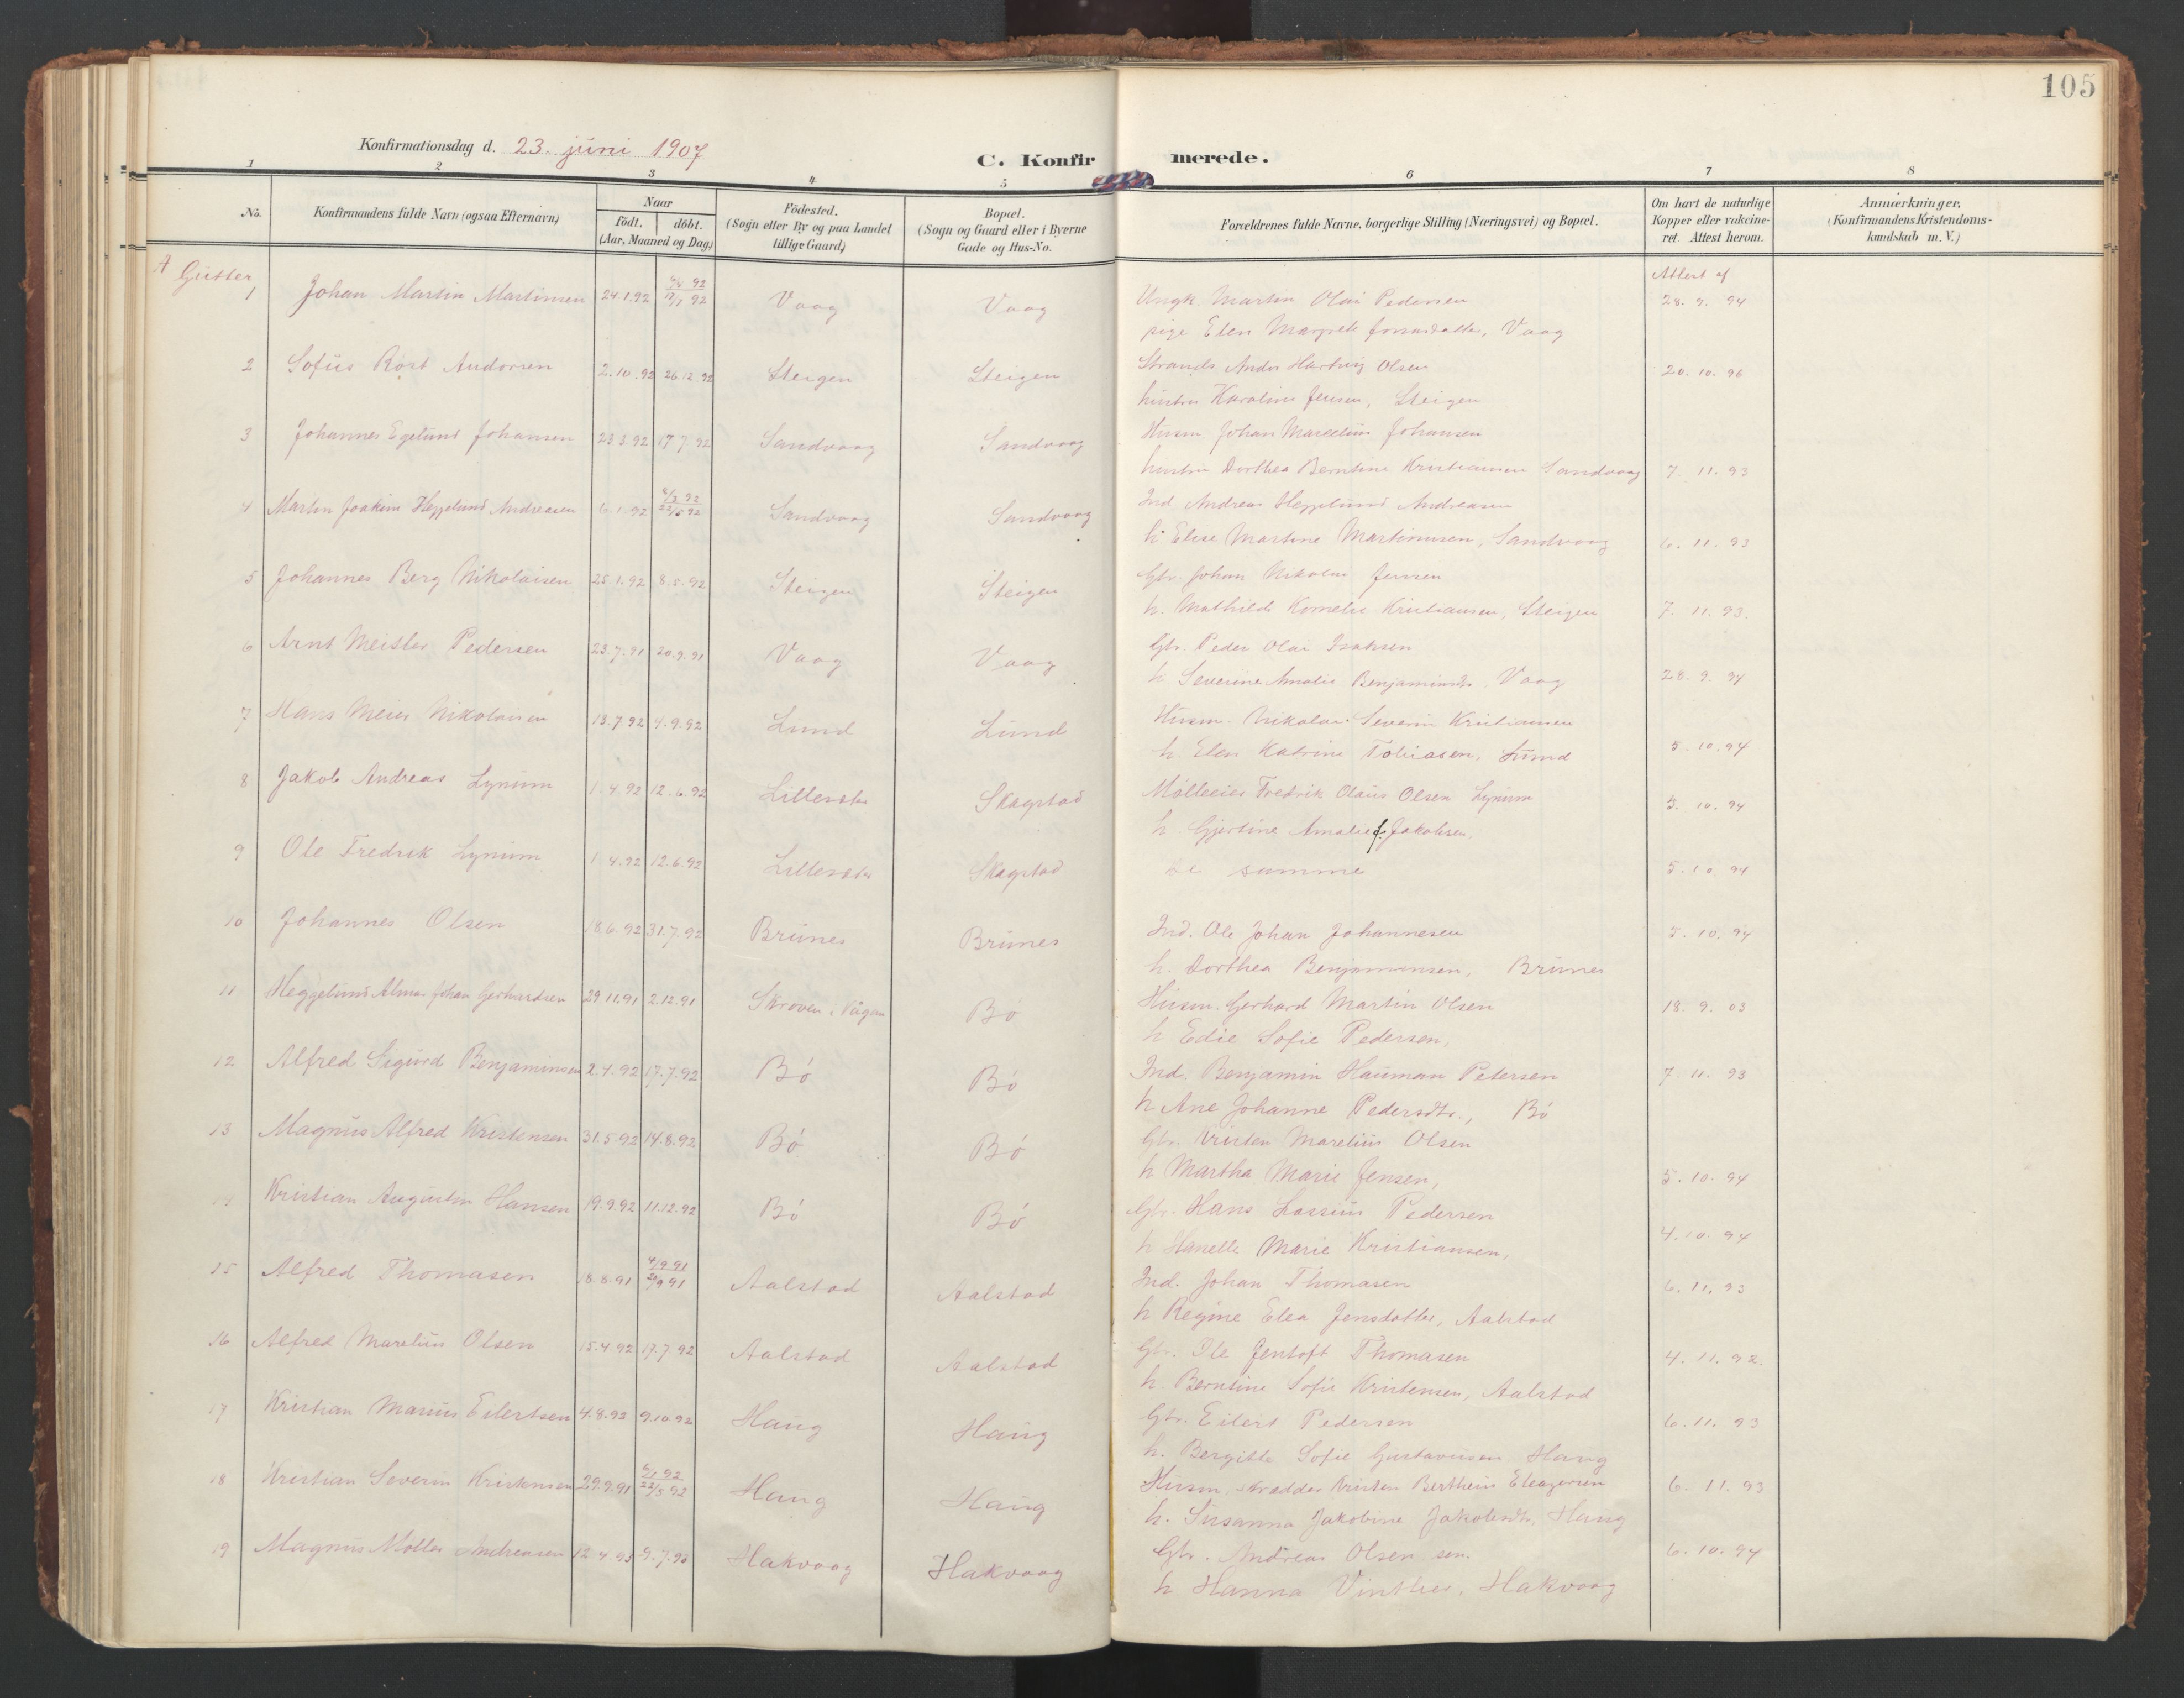 105
Konfirmationsdag d. 23. juni 1907
C. Konfirmerede.
1 2 3 4 5 6 7 8
No.
Konfirmandens fulde Navn (ogsaa Efternavn)
Naar
födt. döbt.
(Aar, Maaned og Dag)
Födested.
(Sogn eller By og paa Landet
tillige Gaard)
Bopæl.
(Sogn og Gaard eller i Byerne
Gade og Hus-No.
Forældrenes fulde Navne, borgerlige Stilling (Næringsvei) og Bopæl.
Om havt de naturlige
Kopper eller vakcine-
ret. Attest herom.
Anmerkninger.
(Konfirmandens Kristendoms-
kundskab m. V.)
A Gutter
Attest af
1 Johan Martin Martinsen 24.1.92 17/7 92 Vaag Vaag Ungk. Martin Olai Pedersen 28. 9. 94
pige Elen Margrete Jonasdatter, Vaag
2 Sofus Rost Andorsen 2.10.92 26.12.92 Steigen Steigen Strands. Andor Hartvig Olsen 20. 10. 96
hustru Karoline Jensen, Steigen
3 Johannes Egelund Johansen 23.3.92 17.7.92 Sandvaag Sandvaag Husm. Johan Marcelius Johansen
hustru Dorthea Berntine Kristiansen Sandvaag 7. 11. 93
4 Martin Joakim Heggelund Andreasen 6.1.92 22/5 92 Sandvaag Sandvaag Ind. Andreas Heggelund Andreasen
h. Elise Martine Martinusen, Sandvaag 6. 11. 93
5 Johannes Berg Nikolaisen 25.1.92 8.5.92 Steigen Steigen Gbr. Johan Nikolai Jensen
h. Mathilde Kornelie Kristiansen, Steigen 7. 11. 93.
6 Arnt Meisler Pedersen 23.7.91 20.9.91 Vaag Vaag Gbr. Peder Olai Isaksen
h. Severine Amalie Benjaminsdr. Vaag 28. 9. 94
7 Hans Meier Nikolaisen 13.7.92 4.9.92 Lund Lund Husm. Nikolai Severin Kristiansen
h. Elen Katrine Tobiasen, Lund 5. 10. 94
8 Jakob Andreas Lynum 1.4.92 12.6.92 Skagstad Mølleeier Fredrik Olaus Olsen Lynum 5. 10. 94
h. Gjertine Amalie f. Jakobsen.
9 Ole Fredrik Lynum 1.4.92 12.6.92 Skagstad de samme 5. 10 94
10 Johannes Olsen 18.6.92 31.7.92 Brunes Brunes Ind. Ole Johan Johannesen 5. 10. 94
h. Dorthea Benjaminsen, Brunes
11 Heggelund Almar Johan Gerhardsen 29.11.91 2.12.91 Skroven i Vågan Bø Husm. Gerhard Martin Olsen 18. 9. 03
h Edie Sofie Pedersen,
12 Alfred Sigurd Benjaminsen 2.4.92 17.7.92 Bø Bø Ind. Benjamin Hauman Petersen 7. 11. 93
h Ane Johanne Pedersdtr., Bø
13 Magnus Alfred Kristensen 31.5.92 14.8.92 Bø Bø Gbr. Kristen Marelius Olsen
h Martha Marie Jensen, 5. 10. 94
14 Kristian Augustin Hansen 19.9.92 11.12.92 Bø Bø Gbr. Hans Lossius Pedersen
h Hanelle Marie Kristiansen, 4. 10. 94
15 Alfred Thomasen 18.8.91 4/9 91 Aalstad Aalstad Ind. Johan Thomasen 6. 11. 93
h Regine Elea Jensdatter, Aalstad
16 Alfred Marelius Olsen 15.4.92 17.7.92 Aalstad Aalstad Gbr. Ole Jentoft Thomasen 4. 11. 92.
h. Berntine Sofie Kristensen, Aalstad
17 Kristian Marius Eilertsen 4.8.92 9.10.92 Haug Haug Gbr. Eilert Pedersen 6. 11. 93
h. Bergitte Sofie Gustavusen Haug
18 Kristian Severin Kristensen 29.9.91 6/1 92 22/5 92 Haug Haug Husm. skrædder Kristen Bertheus Eleazersen 6. 11. 93
h. Susanna Jakobine Jakobsdtr. Haug
19 Magnus Møller Andreasen 12.4.93 9.7.93 Hakvaag Hakvaag Gbr. Andreas Olsen sen. 6. 10. 94
h Hanna Vinther, Hakvaag